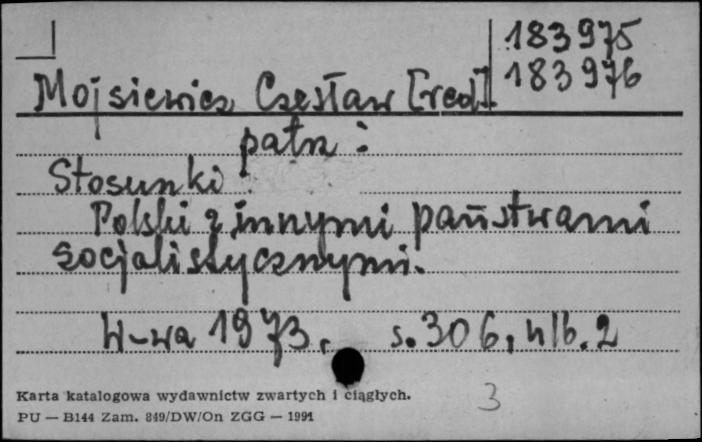 183975
183976
Mojsiewicz Czesław [red]
patrz :
Stosunki
Polski z innymi państwami
socjalistycznymi.
W-wa 1973, s. 306, nlb. 2
Karta katalogowa wydawnictw zwartych i ciągłych.
PU — B144 Zam. 849/DW/On ZGG — 1991
3